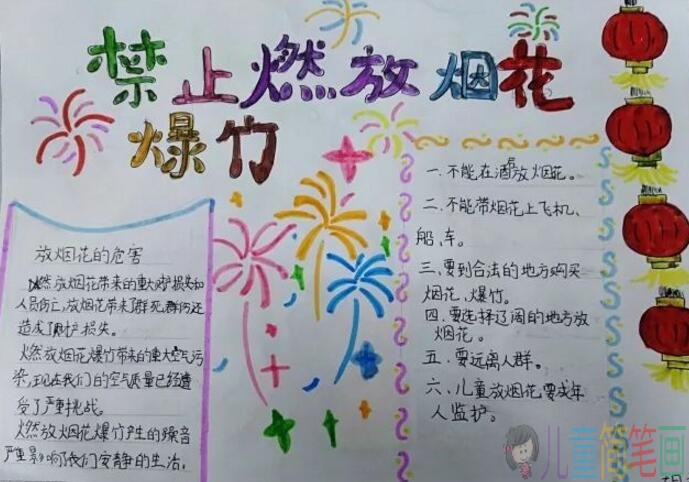 禁止燃放烟花
爆竹
放烟花的危害
燃放烟花带来的重大财产损失和
人员伤亡,放烟花带来了
造成了财产损失。
燃放烟花爆竹带来的重大空气污
染,现在我们的空气质量已经遭
受了严重挑战。
燃放烟花爆竹产生的噪音
严重影响我们安静的生活。
一.不能在酒店放烟花。
二.不能带烟花上飞机、
船、车。
三、要到合法的地方购买
烟花、爆竹。
四.要选择辽阔的地方放
烟花。
五.要远离人群。
六、儿童放烟花要成年
人监护。
儿童简笔画